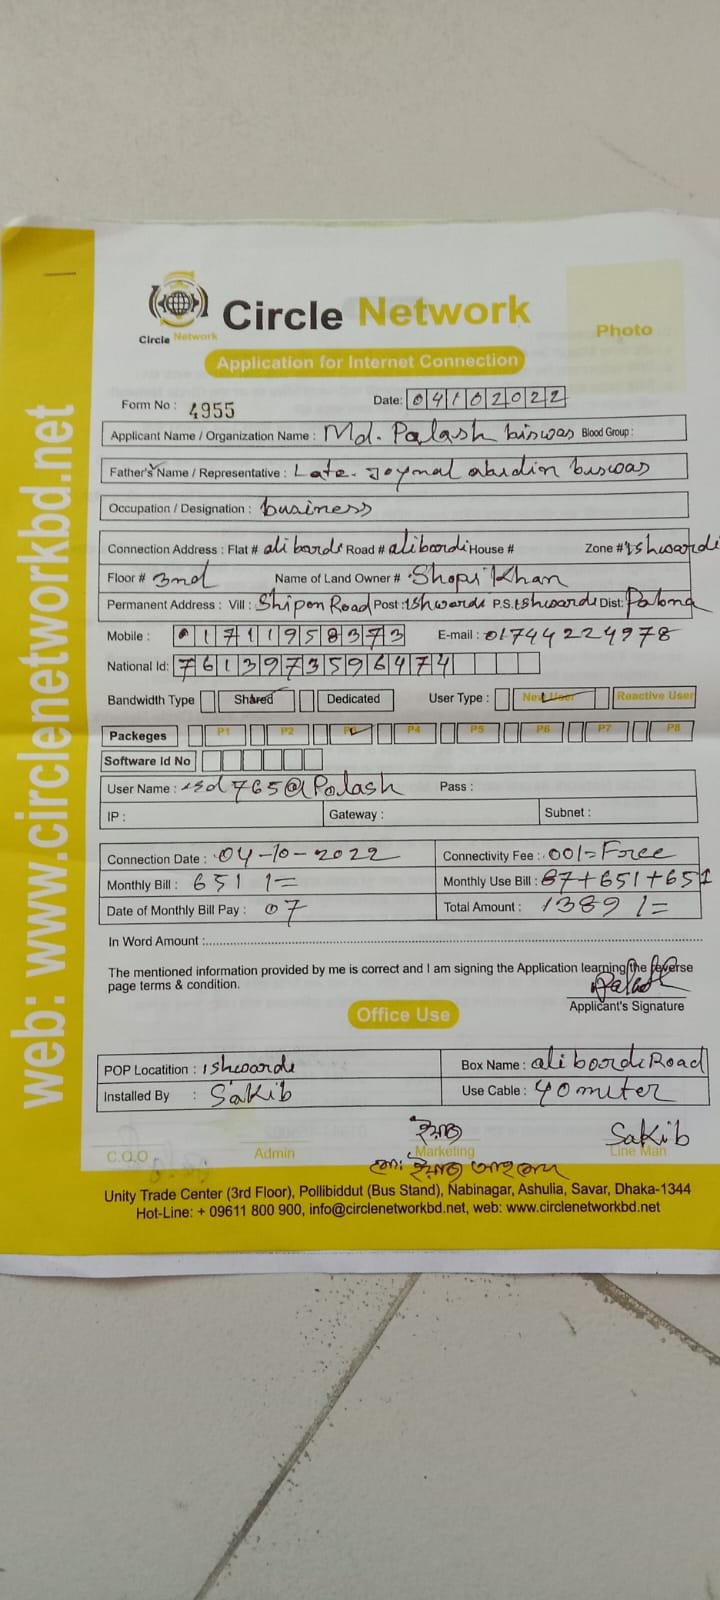 web: www.circlenetworkbd.net
Circle Network
Circle Network
Photo
Application for Internet Connection
Form No : 4955 Date: 04102022
Applicant Name / Organization Name : Md. Palash biswas Blood Group :
Father's Name / Representative : Late. Joynal abidin biswas
Occupation / Designation : business
Connection Address : Flat # ali bardi Road # aliboordi House # Zone # Ishwardi
Floor # 3nd Name of Land Owner # Shopi Khan
Permanent Address : Vill : Shipon Road Post : Ishwardi P.S. Ishwardi Dist: Pabna
Mobile : 01711958373 E-mail : 01744224978
National Id: 76139735964 74
Bandwidth Type Shared Dedicated User Type : New User Reactive User
Packeges P1 P2 P3 P4 P5 P6 P7 P8
Software Id No
User Name : isd765@Palash Pass :
IP : Gateway : Subnet :
Connection Date : 04-10-2022 Connectivity Fee : 00/= Free
Monthly Bill : 651 /= Monthly Use Bill : 87+651+651
Date of Monthly Bill Pay : 07 Total Amount : 1389 /=
In Word Amount :
The mentioned information provided by me is correct and I am signing the Application learning the reverse
page terms & condition.
Palash
Applicant's Signature
Office Use
POP Locatition : Ishwardi Box Name : aliboordi Road
Installed By : Sakib Use Cable : 40 miter
Sakib
C.O.O Admin Marketing Line Man
Unity Trade Center (3rd Floor), Pollibiddut (Bus Stand), Nabinagar, Ashulia, Savar, Dhaka-1344
Hot-Line: + 09611 800 900, info@circlenetworkbd.net, web: www.circlenetworkbd.net